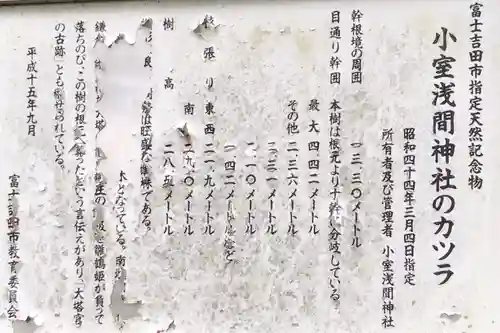 富士吉田市指定天然記念物
小室浅間神社のカツラ
昭和四十四年三月四日指定
所有者及び管理者 小室浅間神社
幹根境の周囲 一三.三〇メートル
目通り幹囲 本樹は根元より十幹に分岐している。
最大 四.四二メートル
その他 二.三六メートル
二.一〇メートル
一.四二メートルなど
枝張り 東西 二一.九メートル
南 メートル
樹高 二八.五メートル
は旺盛な雄株である。
となっている。
の 姫が負って
落ちのび、この樹の根元へ葬ったという言伝えがあり、「大塔宮
の古跡」とも称せられている。
平成十五年九月
富士吉田市教育委員会